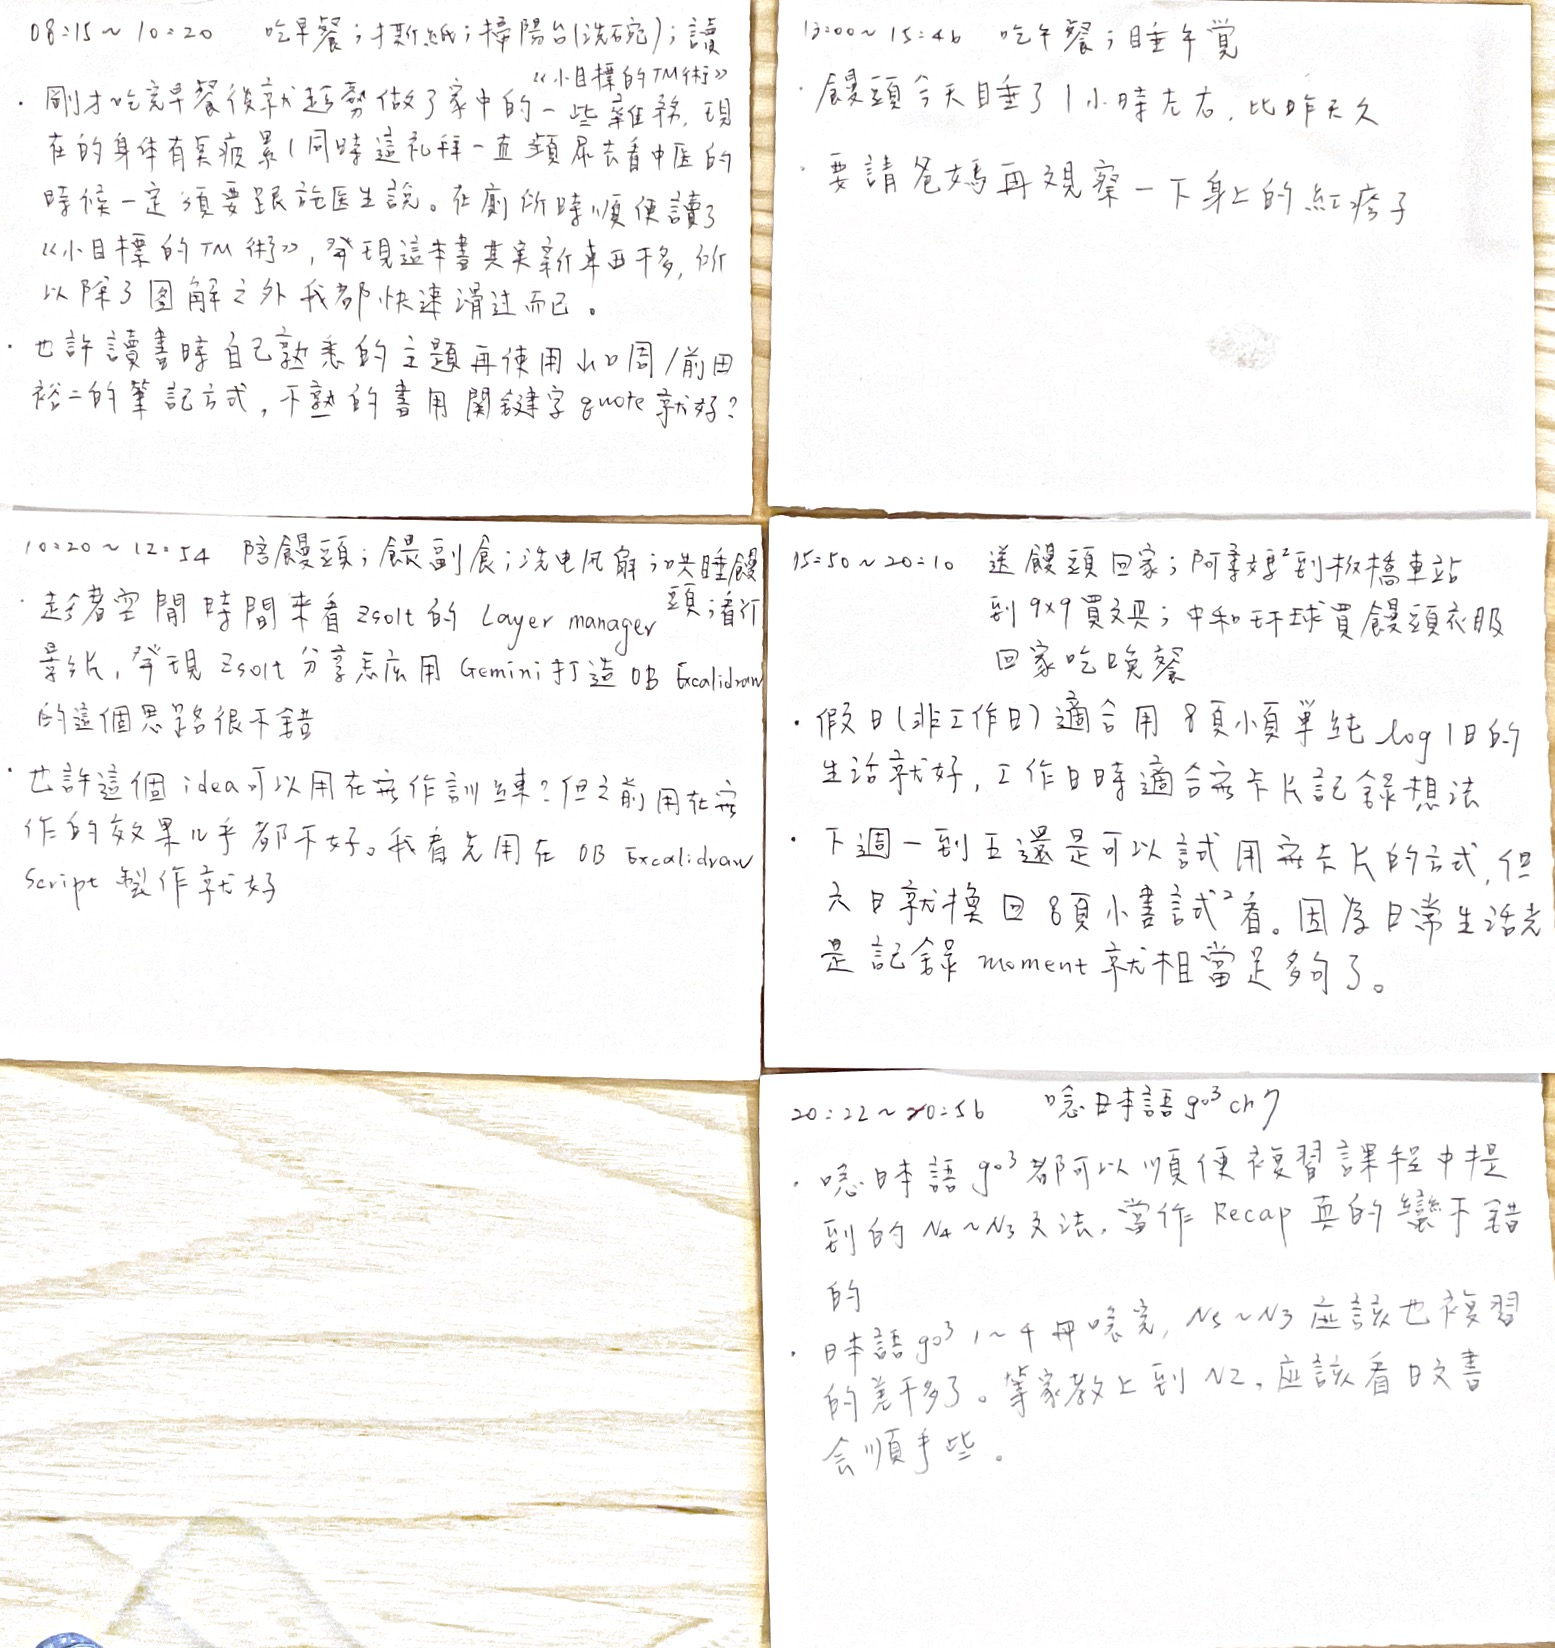 08:15~10:20 吃早餐；撕紙；掃陽台(洗碗)；讀
《小目標的TM術》
· 剛才吃完早餐後就趁勢做了家中的一些雜務，現
在的身体有奌疲累(同時這礼拜一直頻尿去看中医的
時候一定須要跟施医生說。在廁所時順便讀了
《小目標的TM術》，發現這本書其實新東西不多，所
以除了图解之外我都快速滑过而已。
· 也許讀書時自己熟悉的主題再使用山口周/前田
裕二的筆記方式，不熟的書用関鍵字quote就好？
13:00~15:46 吃午餐；睡午覚
· 饅頭今天睡了1小時左右，比昨天久
· 要請爸媽再观察一下身上的紅疹子
10:20~12:54 陪饅頭；餵副食；洗电风扇；哄睡饅
頭；看
· 趁著空閒時間來看Zsolt的Layer manager
影片，發現Zsolt分享怎麼用Gemini打造OB Excalidraw
的這個思路很不錯
· 也許這個idea可以用在寫作訓練？但之前用在寫
作的效果几乎都不好。我看先用在OB Excalidraw
Script製作就好
15:50~20:10 送饅頭回家；阿柔媽²到板橋車站
到9x9買文具；中和环球買饅頭衣服
回家吃晚餐
· 假日(非工作日)適合用8頁小頁單純log1日的
生活就好，工作日時適合寫卡片記錄想法
· 下週一到五還是可以試用寫卡片的方式，但
六日就換回8頁小書試²看。因為日常生活光
是記錄moment就相當足夠了。
20:22~20:56 唸日本語go³ ch7
· 唸日本語go³都可以順便複習課程中提
到的N4~N3文法，當作Recap真的蠻不錯
的
· 日本語go³ 1~4冊唸完，N5~N3应該也複習
的差不多了。等家教上到N2，应該看日文書
会順手些。